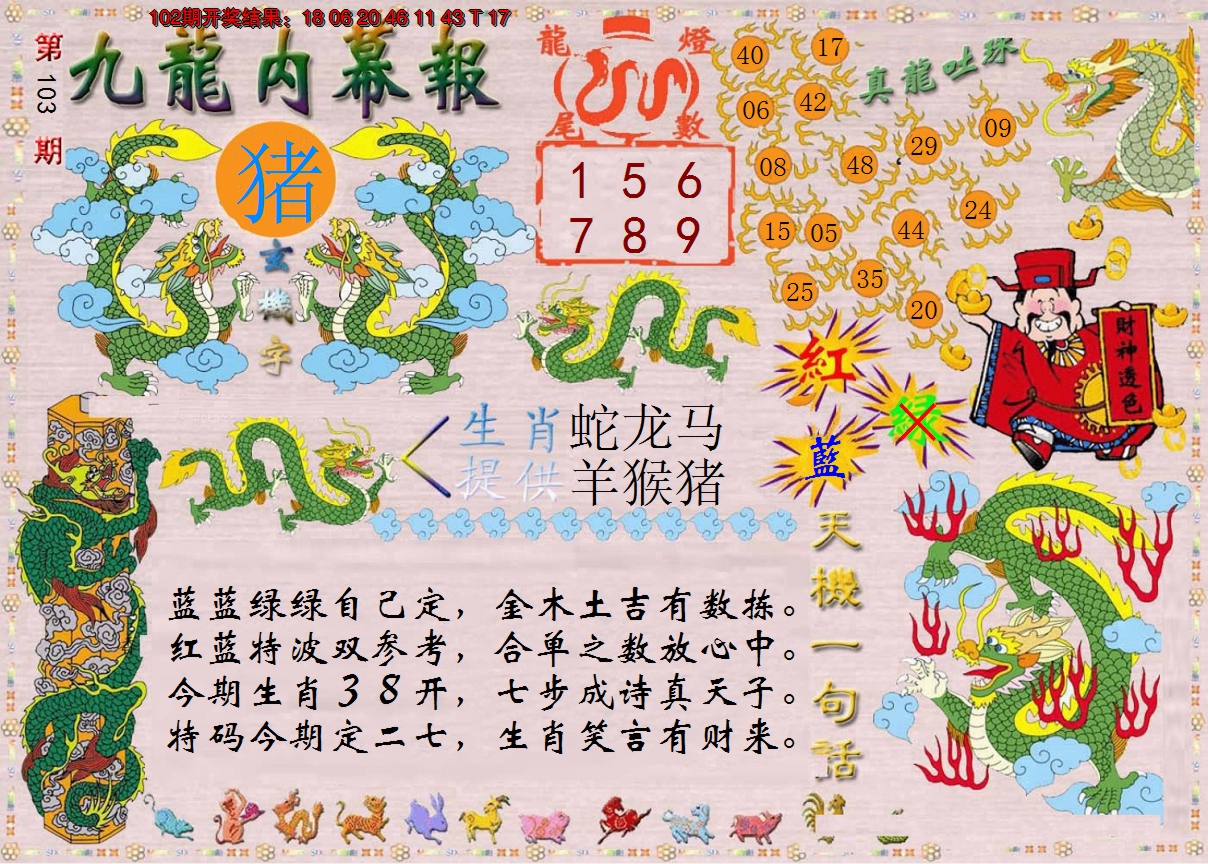 102期开奖结果：18 06 20 46 11 43 T 17
第103期
九龍内幕報
猪
玄機字
龍燈
尾數
1 5 6
7 8 9
真龍吐珠
40 17
06 42
29 09
08 48
24
15 05 44
25 35
20
財神透色
紅
绿
藍
生肖 蛇龙马
提供 羊猴猪
天機一句話
蓝蓝绿绿自己定，金木土吉有数拣。
红蓝特波双参考，合单之数放心中。
今期生肖38开，七步成诗真天子。
特码今期定二七，生肖笑言有财来。